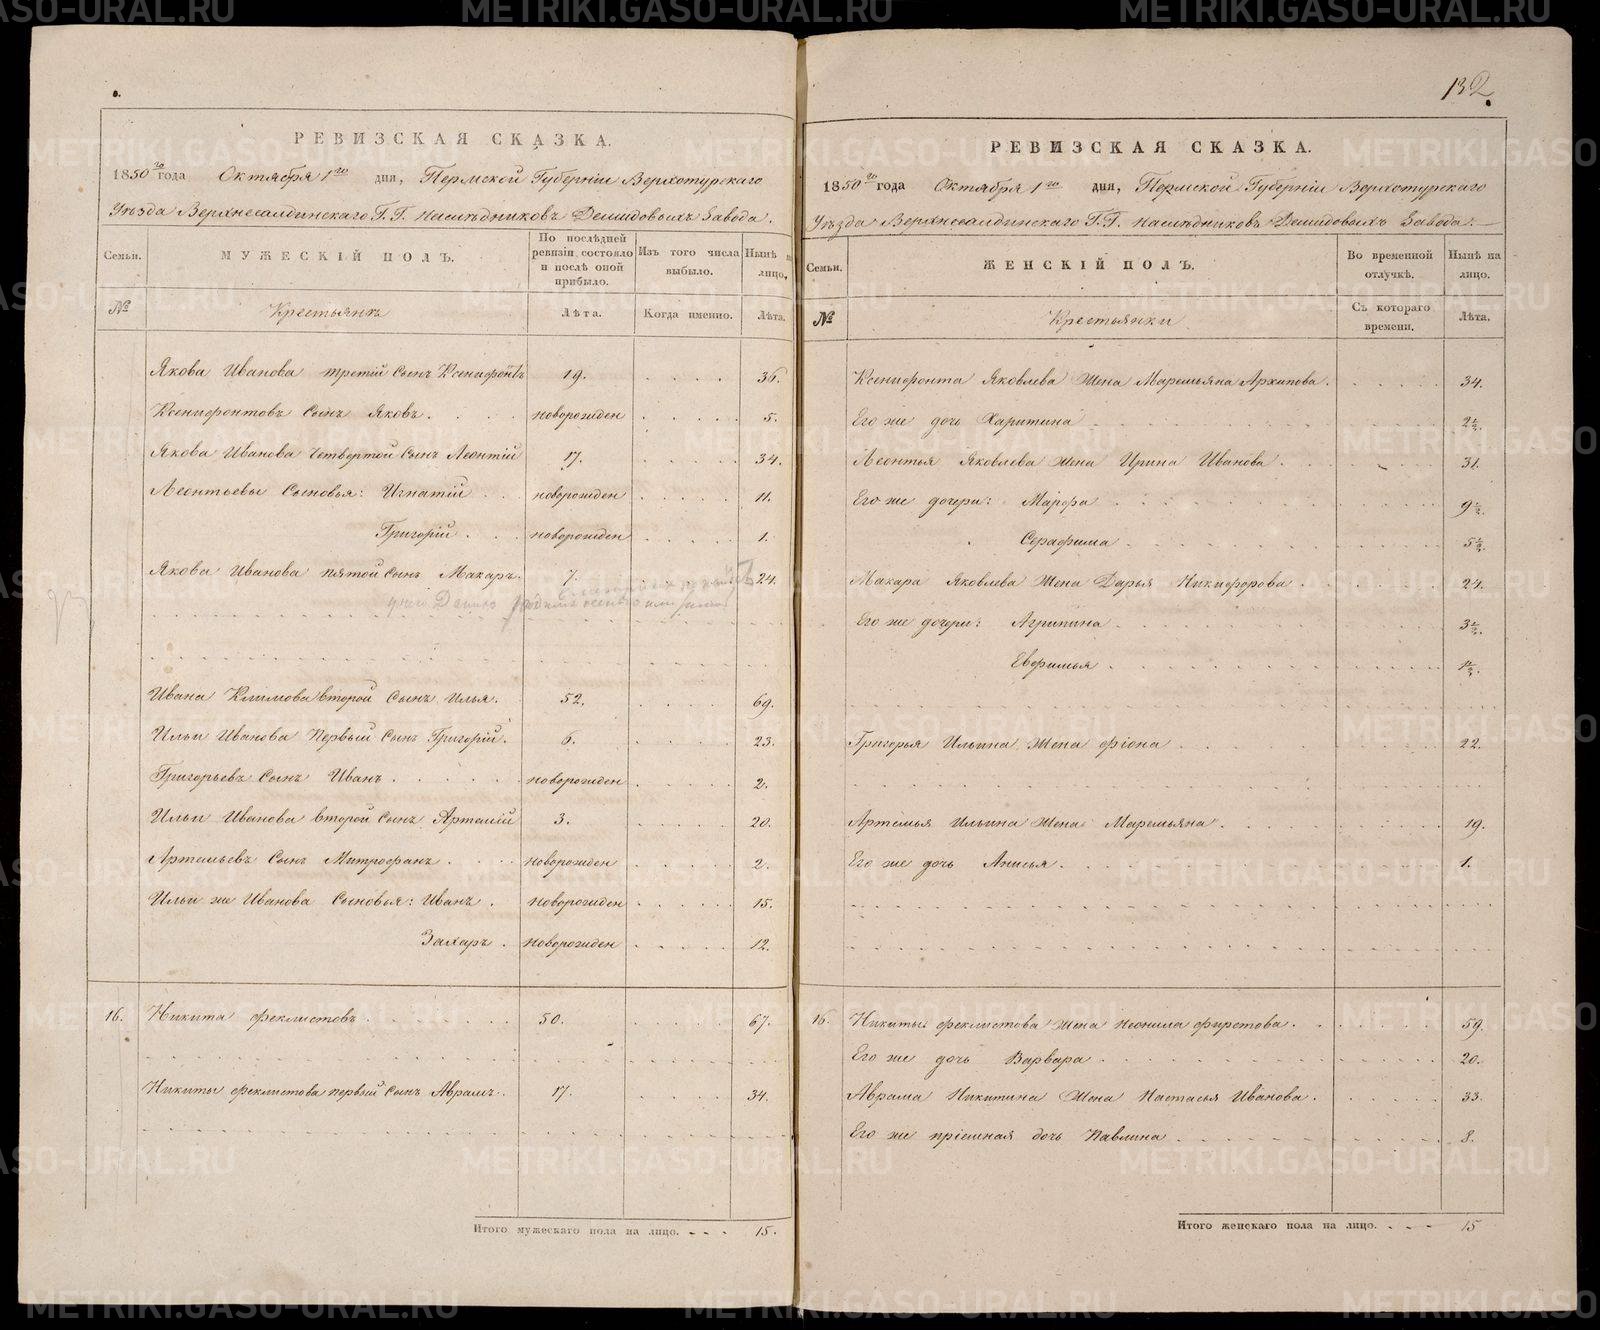 132.
РЕВИЗСКАЯ СКАЗКА.
1850го года Октября 1го дня, Пермской Губерніи Верхотурскаго
Уѣзда Верхнесалдинскаго Г.Г. Наслѣдниковъ Демидовыхъ Завода.
Семьи. МУЖЕСКІЙ ПОЛЪ. По послѣдней ревизіи состояло и послѣ оной прибыло. Изъ того числа выбыло. Нынѣ на лицо,
№ Крестьянъ Лѣта. Когда именно. Лѣта.
Якова Иванова третій Сынъ Ксенифонтъ 19. 36.
Ксенифонтовъ Сынъ Яковъ. новорожден 5.
Якова Иванова Четвертой Сынъ Леонтій 17. 34.
Леонтьевы Сыновья: Игнатій новорожден 11.
Григорій новорожден 1.
Якова Иванова пятой Сынъ Макаръ. 7. 24.
Ивана Климова второй Сынъ Илья. 52. 69.
Ильи Иванова Первый Сынъ Григорій. 6. 23.
Григорьевъ Сынъ Иванъ новорожден 2.
Ильи Иванова второй Сынъ Артемій 3. 20.
Артемьевъ Сынъ Митрофанъ новорожден 2.
Ильи же Иванова Сыновья: Иванъ новорожден 15.
Захаръ новорожден 12.
16. Никита Феклистовъ 50. 67.
Никиты Феклистова первый Сынъ Аврамъ. 17. 34.
Итого мужескаго пола на лицо. 15.
РЕВИЗСКАЯ СКАЗКА.
1850го года Октября 1го дня, Пермской Губерніи Верхотурскаго
Уѣзда Верхнесалдинскаго Г.Г. Наслѣдниковъ Демидовыхъ Завода.
Семьи. ЖЕНСКІЙ ПОЛЪ. Во временной отлучкѣ. Нынѣ на лицо.
№ Крестьянки Съ котораго времени. Лѣта.
Ксенифонта Яковлева Жена Маремьяна Архипова. 34.
Его же дочь Харитина 2½.
Леонтья Яковлева Жена Ирина Иванова. 31.
Его же дочери: Марфа 9½.
Серафима 5½.
Макара Яковлева Жена Дарья Никифорова 24.
Его же дочери: Агрипина 3½.
Евфимья ½.
Григорья Ильина Жена Фіона 22.
Артемья Ильина Жена Маремьяна. 19.
Его же дочь Анисья. 1.
16. Никиты Феклистова Жена Неонила Фирстова. 59.
Его же дочь Варвара 20.
Аврама Никитина Жена Настасья Иванова. 33.
Его же пріемная дочь Павлина 8.
Итого женскаго пола на лицо. 15
METRIKI.GASO-URAL.RU